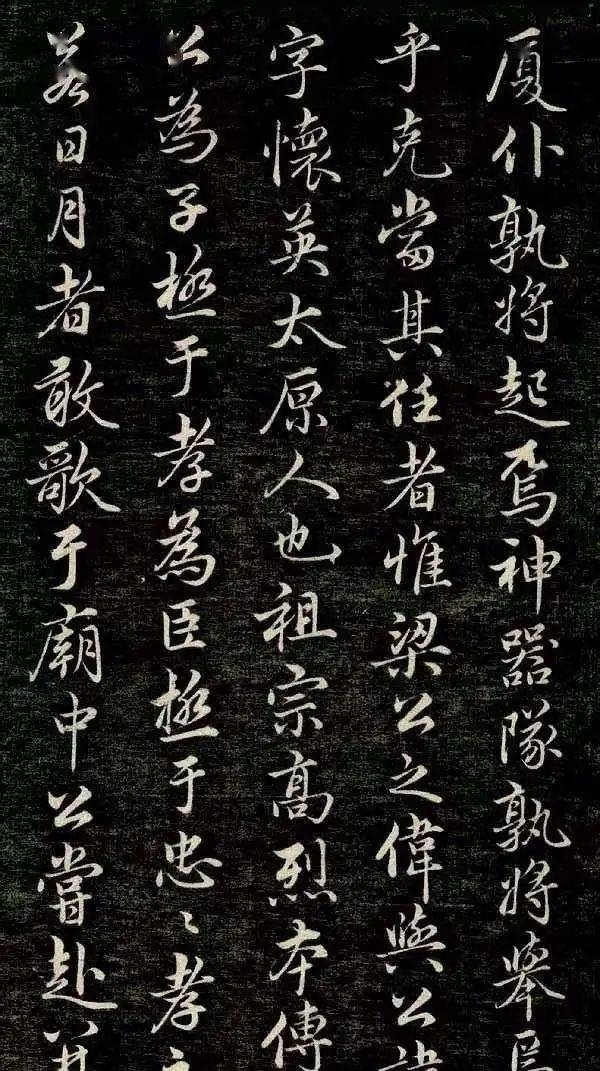 厦仆孰将起焉神器隊孰将舉焉
乎克當其任者惟梁公之偉與公諱
字懷英太原人也祖宗高烈本傳
公為子極于孝為臣極于忠〻孝之
若日月者敢歌于廟中公嘗赴并